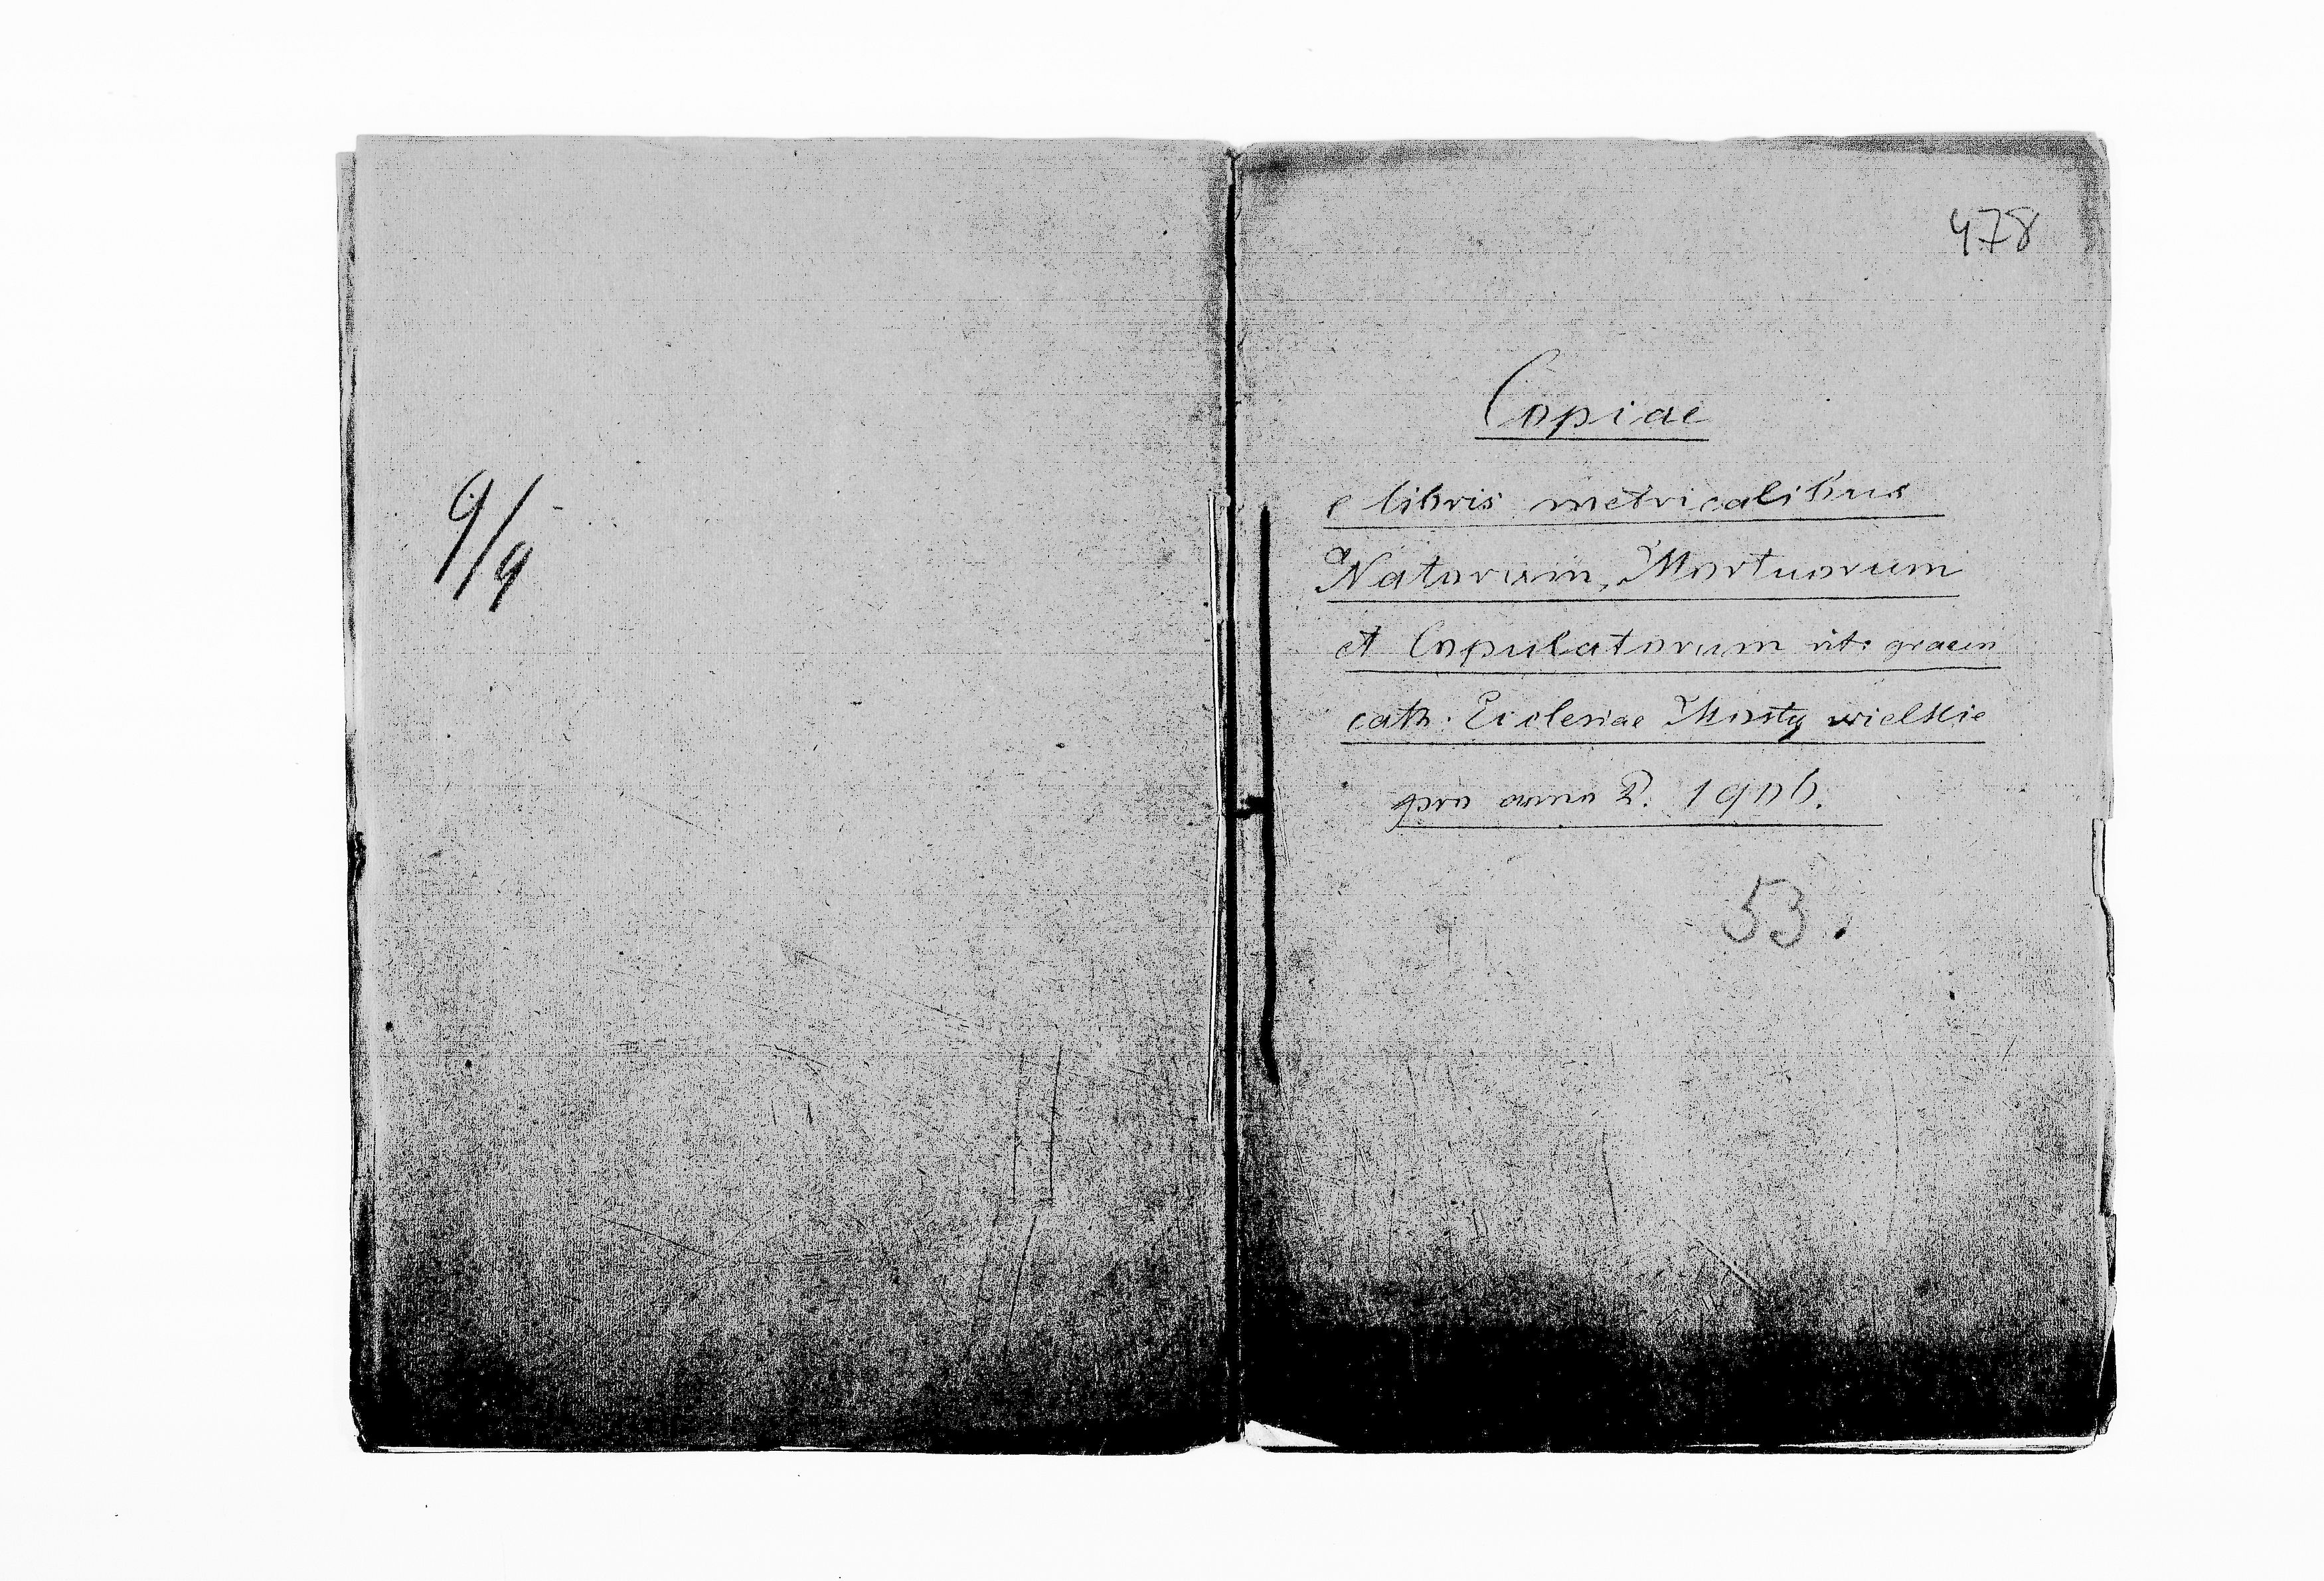 9/9
478
Copiae
e libris metricalibus
Natorum, Mortuorum
et Copulatorum rit: graeco
cath. Ecclesiae Mosty wielkie
pro anno D. 1906.
53.